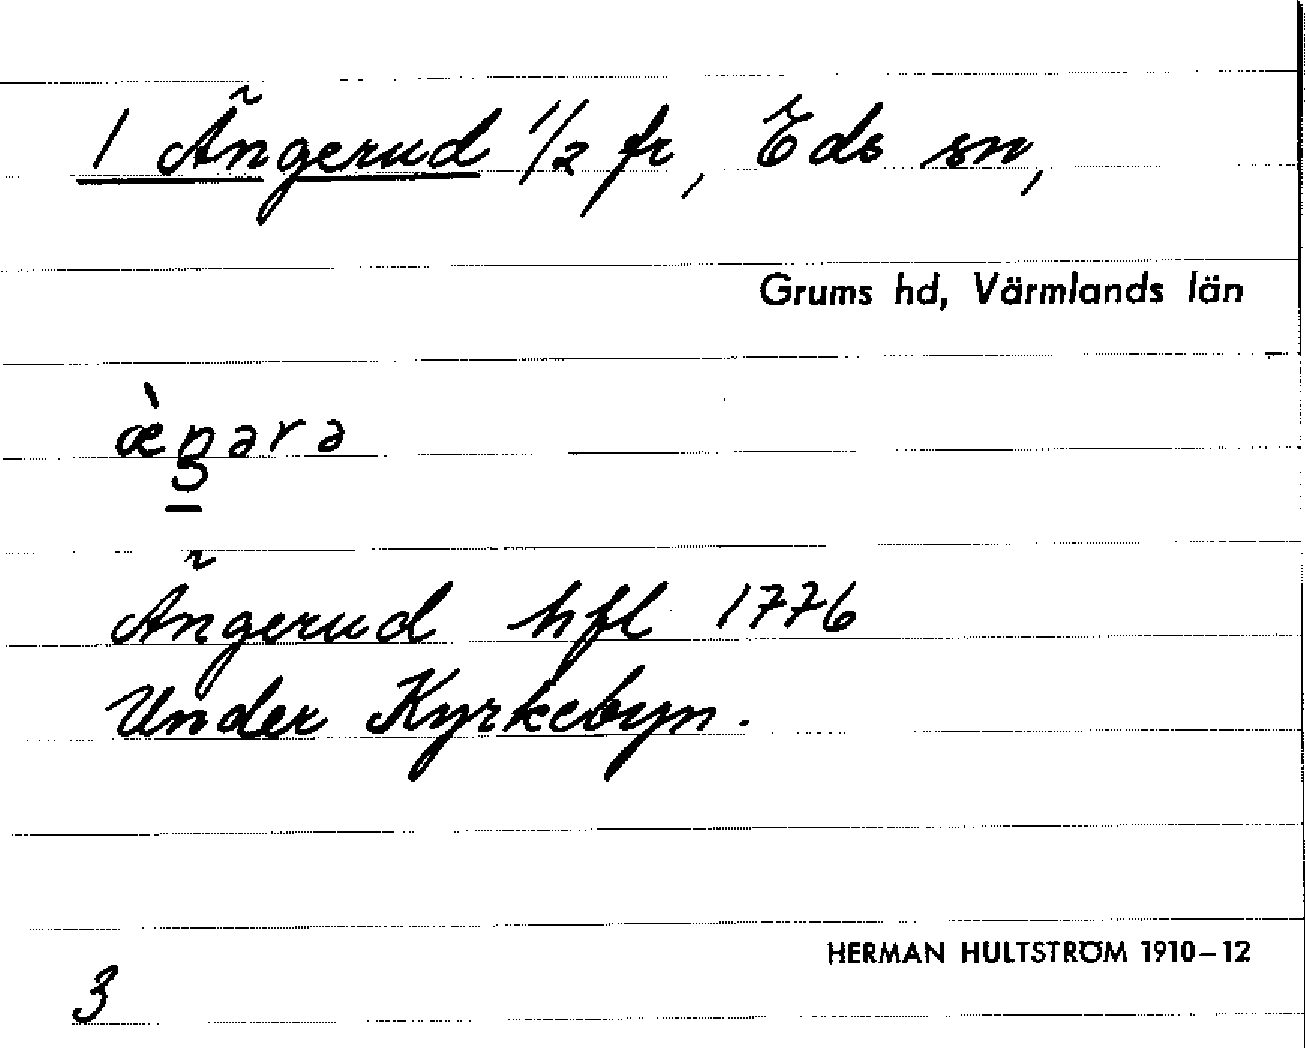 1 Ängerud 1/2 fr, Eds sn,
Grums hd, Värmlands län
æ̀ŋərə
Ängerud hfl 1776
Under Kyrkebyn.
HERMAN HULTSTRÖM 1910–12
3